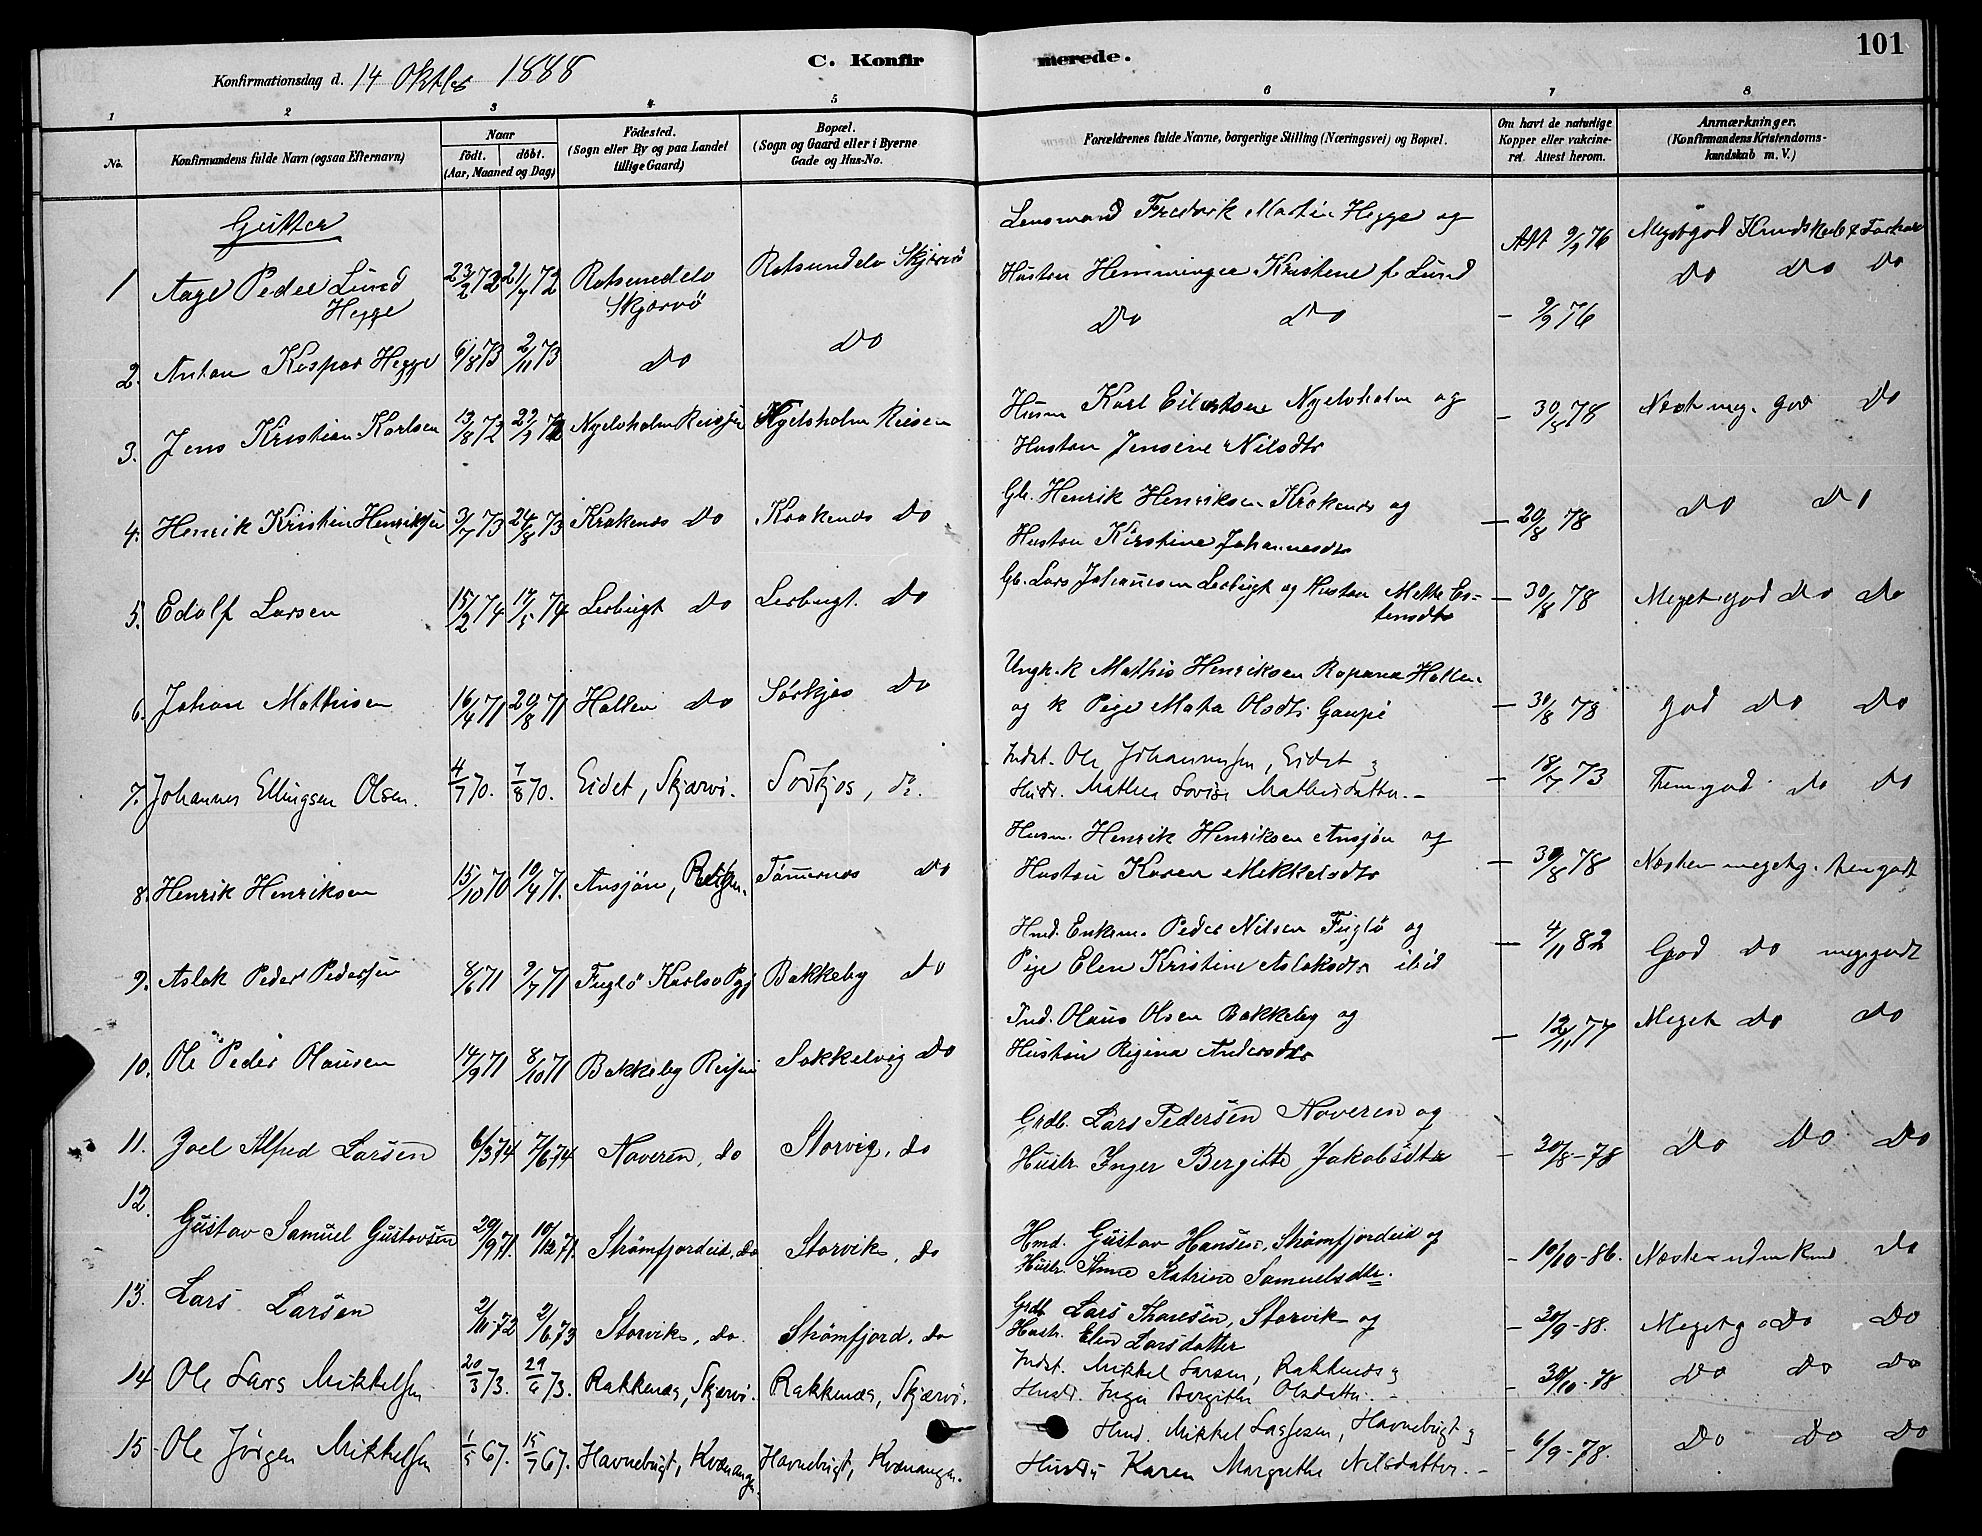 101
Konfirmationsdag d. 14 Oktbr 1888
C. Konfirmerede.
1 2 3 4 5 6 7 8
No.
Konfirmandens fulde Navn (ogsaa Efternavn)
Naar
födt. döbt.
(Aar, Maaned og Dag)
Födested.
(Sogn eller By og paa Landet
tillige Gaard)
Bopæl.
(Sogn og Gaard eller i Byerne
Gade og Hus-No.
Forældrenes fulde Navne, borgerlige Stilling (Næringsvei) og Bopæl.
Om havt de naturlige
Kopper eller vakcine-
ret. Attest herom.
Anmærkninger.
(Konfirmandens Kristendoms-
kundskab m. V.)
Gutter
1 Aage Peder Lund Hegge 23/2 72 21/7 72 Rotsundelv Skjærvö Rotsundelv Skjærvö
Lensmand Fredrik Martin Hegge og
Hustru Hemmingee Kristine f. Lund
Att 9/9 76 Meget god Kundskab &
Do Do Do
2. Anton Kaspar Hegge 6/8 73 2/11 73 Do Do
Do Do
- 9/9 76
3. Jens Kristian Karlsen 13/8 72 22/9 72 Nyelvholm Reisen Nyelvholm Reisen
Husm Karl Eilertsen Nyelvholm og
Hustru Jensine Nilsdtr
- 30/8 78 Næst meg. god Do
4. Henrik Kristian Henriksen 3/7 73 24/8 73 Krakenes Do Krakenes Do
Gb. Henrik Henriksen Krakenes og
Hustru Kirstine Johannesdtr
- 20/8 78 Do Do
5. Edolf Larsen 15/2 74 17/5 74 Lerbugt Do Lerbugt. Do
Gb. Lars Johannesen Lerbugt og Hustru Mette Es-
tensdtr
- 30/8 78 Meget god Do Do
6. Johan Mathisen 16/4 71 20/8 71 Hallen Do Sörkjos Do
Ungk. k Mathis Henriksen Hallen
og k Pige Mata Olsdtr Gaupe
- 30/8 78 god Do Do
7. Johannes Ellingsen Olsen. 4/7 70. 7/8 70. Eidet, Skjærvö. Sörkjos, do.
Indst. Ole Johannesen, Eidet og
Hustr. Mathea Lovise Mathisdatter. -
- 18/7 73 Temgod. do do
8. Henrik Henriksen 15/10 70 10/4 71. Ansjön, Reisen. Tömernes Do
Husm. Henrik Henriksen Ansjön og
Hustru Karen Mikkelsdtr
- 30/8 78 Næsten meget g. temgodt
9. Aslak Peder Pedersen 8/6 71 9/7 71 Fuglö Karlsö Pgj Bakkeby Do
Hmd. Enkem. Peder Nilsen Fuglö og
Pige Elen Kristine Aslaksdtr ibid
- 4/11 82 God Do megegodt
10. Ole Peder Olausen 14/9 71 8/10 71 Bakkeby Reisen Sokkelvig Do
Ind. Olaus Olsen Bakkeby og
Hustru Regina Andersdtr
- 12/11 77 Meget Do Do
11. Joel Alfred Larsen 6/3 74 7/6 74 Noveren, do Storvig, do
Grdb. Lars Pedersen Noveren og
Hustr. Inger Bergitte Jakobsdtr
- 30/8 - 78 Do Do Do
12. Gustav Samuel Gustavsen 29/9 71. 10/12 71. Strömfjordeid, do Storvik, do
Hmd. Gustav Hansen, Strömfjordeid og
Hustr. Anne Katrine Samuelsdtr.
- 10/10 - 86. Næsten uden Do
13. Lars Larsen 2/11 72 2/6 73 Storvik, do. Strömfjord, do
Grdb. Lars Thoresen, Storvik og
Hustr. Elen Larsdatter
- 30/9 - 88. Meget g. Do Do
14 Ole Lars Mikkelsen 20/3 73. 29/6 73. Rakkenæs, Skjærvö. Rakkenæs, Skjærvö.
Indst. Mikkel Larsen, Rakkenæs og
Hustr. Inger Bergithe Olsdatter. -
- 30/10 - 78 Do Do Do
15 Ole Jörgen Mikkelsen 1/5 67. 15/7 67. Havnebugt, Kvænangen Havnebugt, Kvænangen.
Hmd. Mikkel Lassesen, Havnebugt og
Hustru Karen Margrethe Nilsdatter. -
- 6/9 - 78. Do Do Do